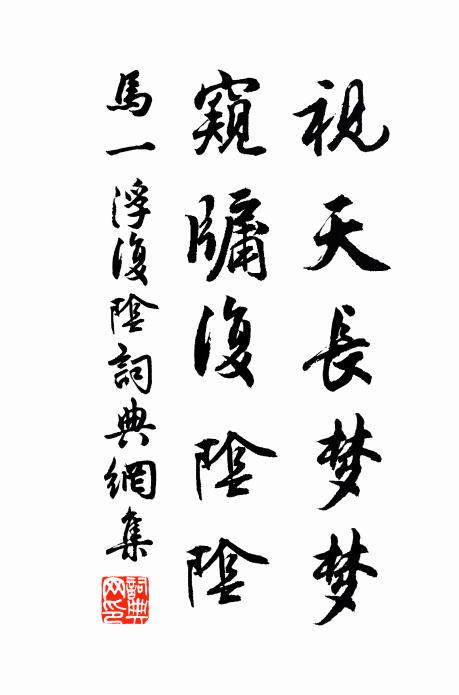 視天長梦梦
窺牖復陰陰
馬一浮復陰詞典網集
詞典网印